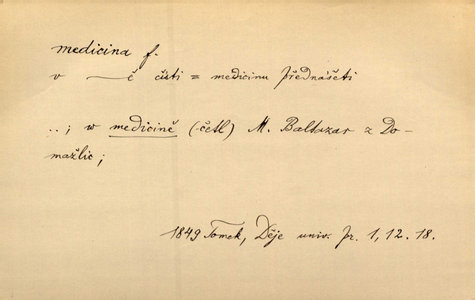 medicina f.
v —č čísti = medicinu přednášeti
..; w medicině (četl) M. Baltazar z Do-
mažlic;
1849 Tomek, Děje univ. pr. 1, 12. 18.